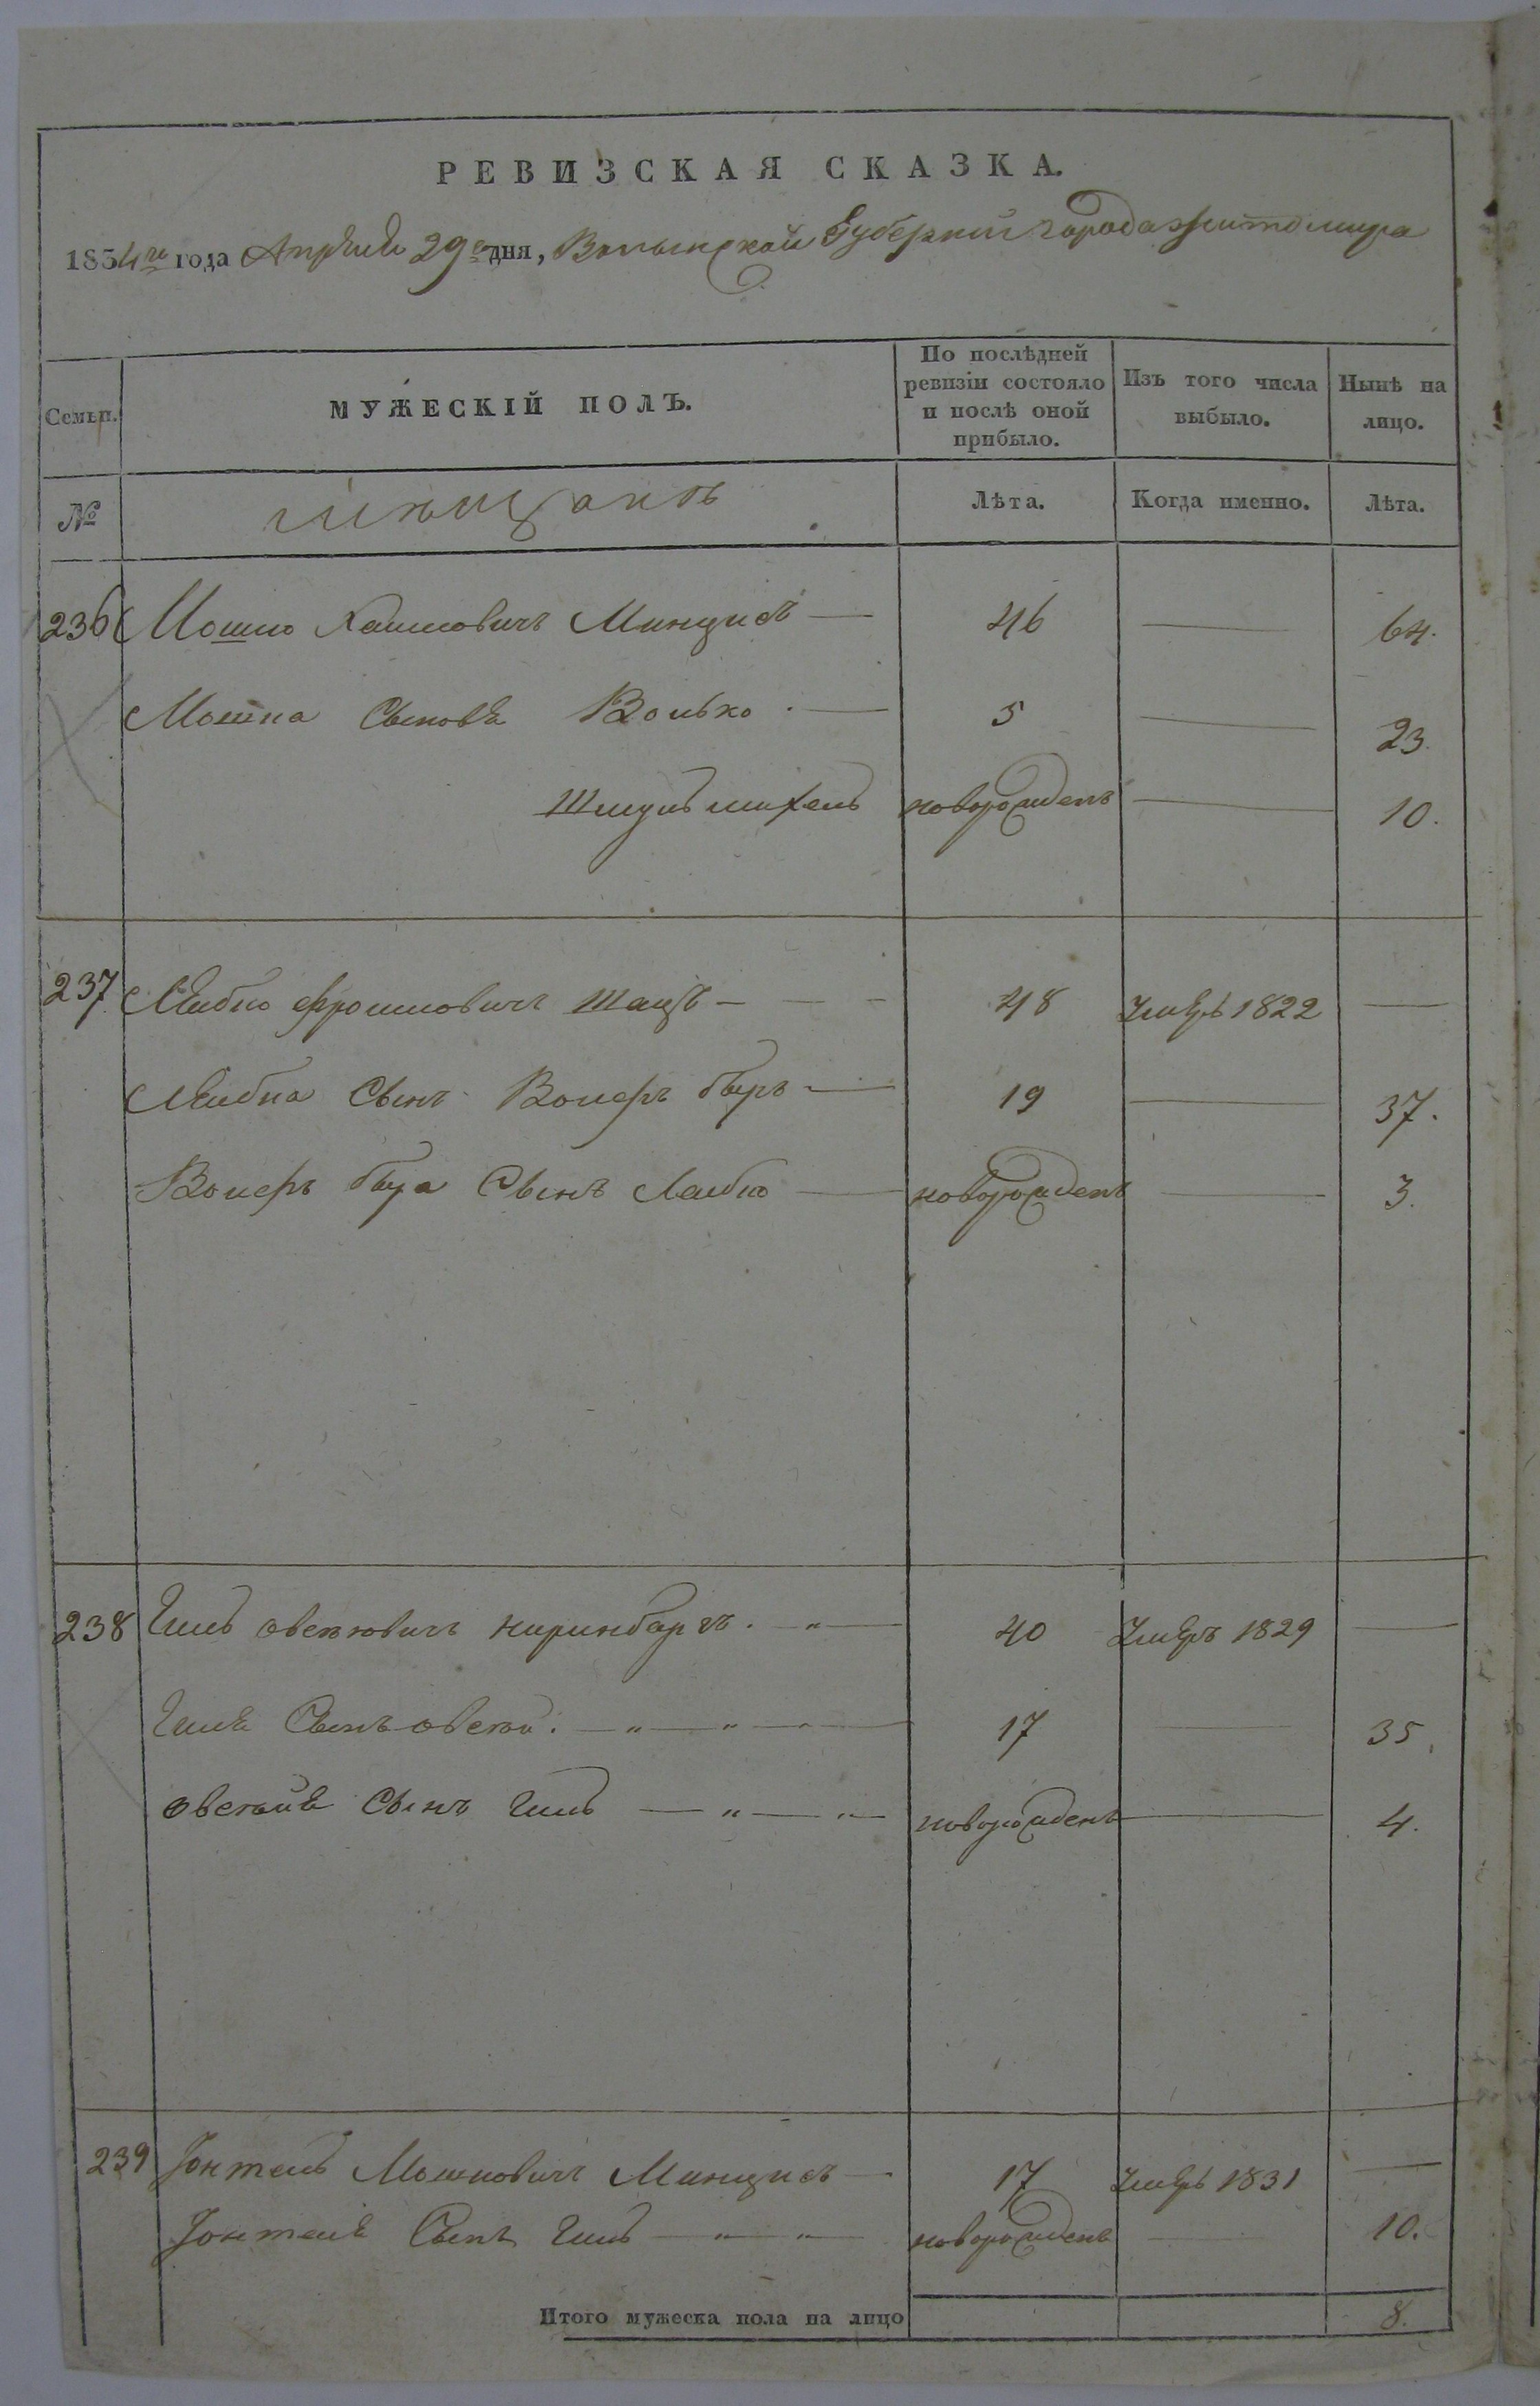 РЕВИЗСКАЯ СКАЗКА.
1834го года Апреля 29го дня, Волынской Губернии города Житомира
Семьи. МУЖЕСКІЙ ПОЛЪ. По послѣдней ревизіи состояло и послѣ оной прибыло. Изъ того числа выбыло. Нынѣ на лицо.
№ мѣщанъ Лѣта. Когда именно. Лѣта.
236 Мошко Хаимовичъ Минцисъ — 46 — 64.
Мошка Сыновя Волько — 5 — 23.
Шмуль михель новорожденъ — 10.
237 Лейбко Фроимовичъ Шацъ — 48 Умеръ 1822 —
Лейбка Сынъ Волеръ беръ — 19 — 37.
Волеръ бера Сынъ Лейбко — новорожденъ — 3.
238 Гиль овсеювичъ Киринбаргъ — 40 Умеръ 1829 —
Гиля Сынъ овсей — 17 — 35.
овсейя Сынъ Гиль — новорожденъ — 4.
239 Іонтель Мошковичъ Минцисъ — 17 Умеръ 1831 —
Іонтеля Сынъ Гиль — новорожденъ — 10.
Итого мужеска пола на лицо 8.